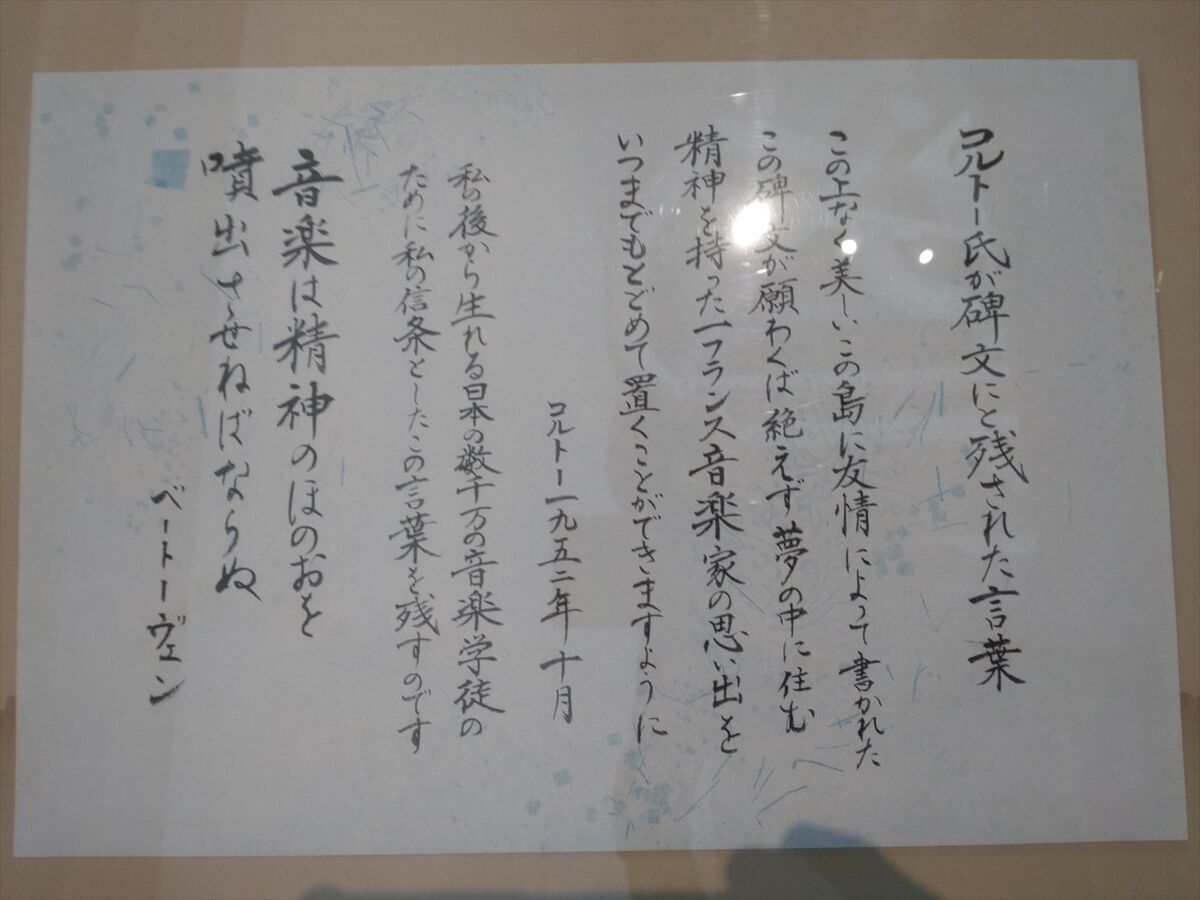 コルトー氏が碑文にと残された言葉
この上なく美しいこの島に友情によって書かれた
この碑文が願わくば絶えず夢の中に住む
精神を持った一フランス音楽家の思い出を
いつまでもとどめて置くことができますように
コルトー一九五二年十月
私の後から生れる日本の数千万の音楽学徒の
ために私の信条としたこの言葉を残すのです
音楽は精神のほのおを
噴出させねばならぬ
ベートーヴェン